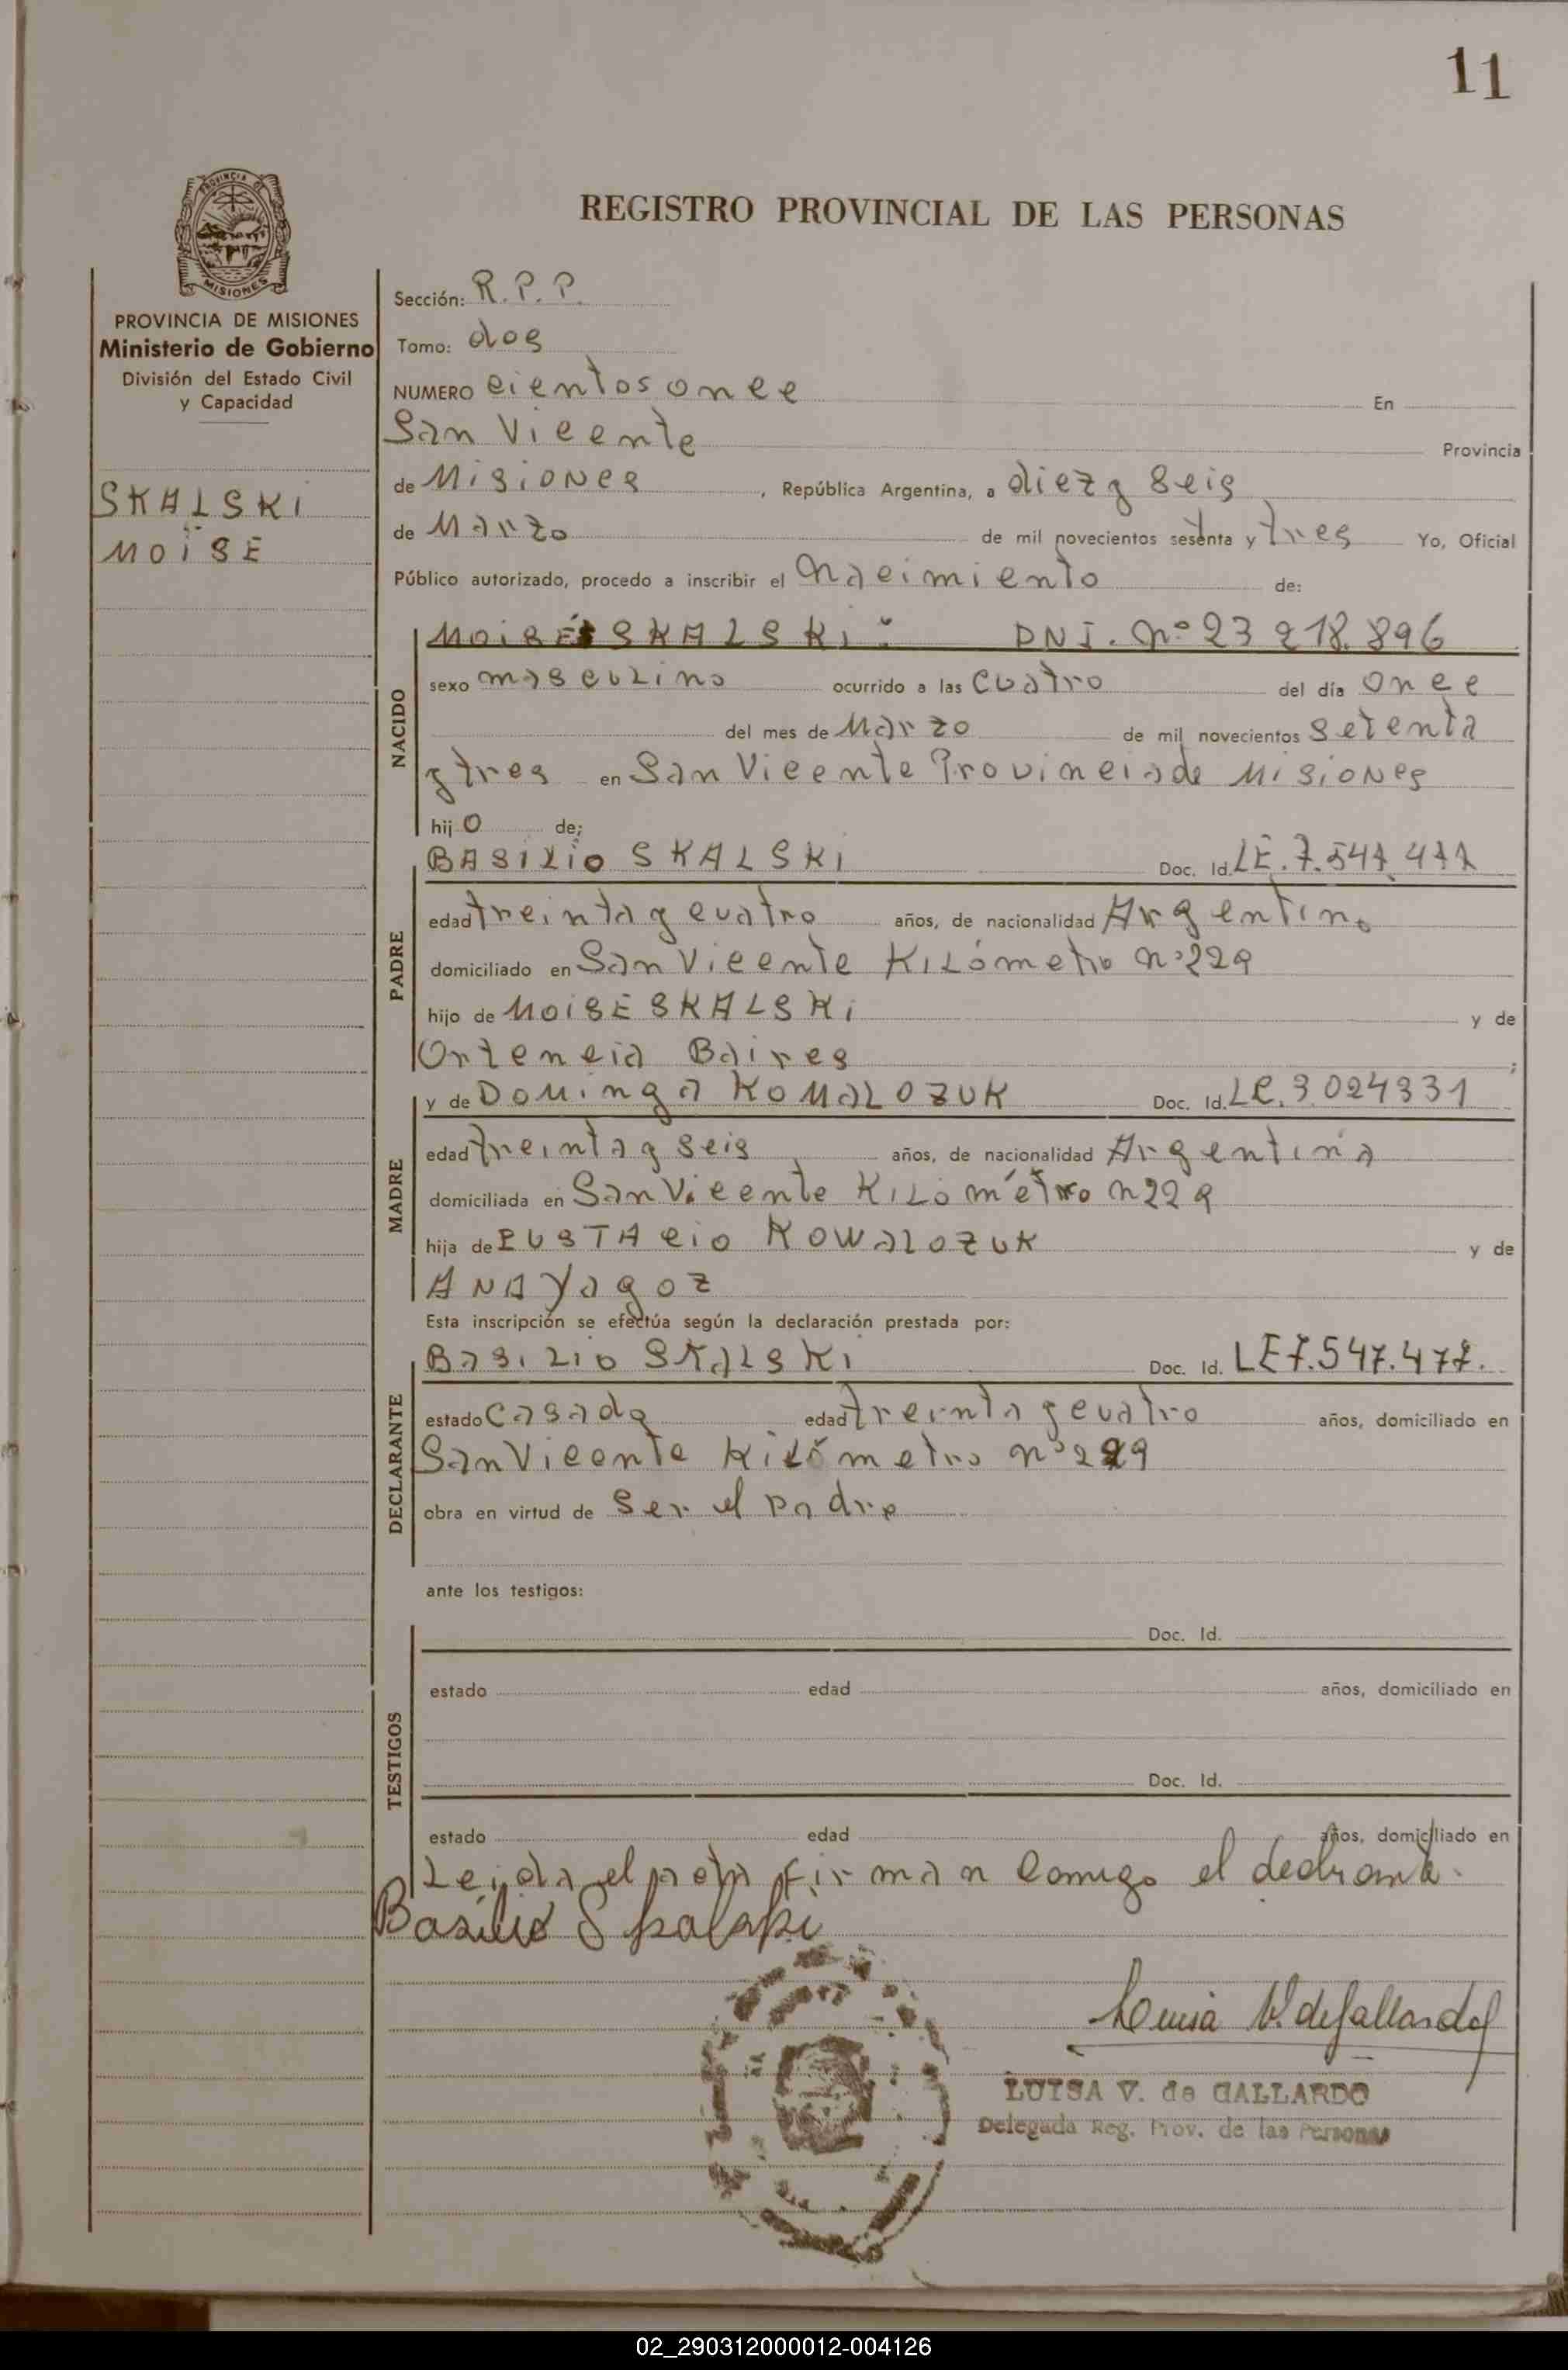 11
PROVINCIA DE
MISIONES
REGISTRO PROVINCIAL DE LAS PERSONAS
PROVINCIA DE MISIONES
Ministerio de Gobierno
División del Estado Civil
y Capacidad
SKALSKI
MOiSE
Sección: R.P.P.
Tomo: dos
NUMERO cientos once En
San Vicente Provincia
de Misiones, República Argentina, a diez y Seis
de Marzo de mil novecientos setenta y tres Yo, Oficial
Público autorizado, procedo a inscribir el nacimiento de:
NACIDO
MOiSÉ SKALSKi: DNI. Nº 23 218.896
sexo masculino ocurrido a las cuatro del día once
del mes de Marzo de mil novecientos setenta
y tres en San Vicente Provincia de Misiones
hijo de;
PADRE
BASiLio SKALSKi Doc. Id. LE.7.547.477
edad treinta y cuatro años, de nacionalidad Argentino
domiciliado en San Vicente Kilómetro nº 229
hijo de MOiSE SKALSKi y de
Ortencia Baires;
MADRE
y de Dominga KOMALOZUK Doc. Id. LC.3.024331
edad treinta y seis años, de nacionalidad Argentina
domiciliada en San Vicente Kilómétro n 229
hija de EUSTAcio KOWalOZUK y de
ANA Yagoz
Esta inscripción se efectúa según la declaración prestada por:
DECLARANTE
Basilio SKALSKi Doc. Id. LE7.547.477.
estado Casado edad treinta y cuatro años, domiciliado en
San Vicente Kilómetro nº 229
obra en virtud de Ser el padre
ante los testigos:
TESTIGOS
Doc. Id.
estado edad años, domiciliado en
Doc. Id.
estado edad años, domiciliado en
Leida el acta firman Comigo el declarante.
Basilio Skalski
Luisa V. de Gallardo
LUISA V. de GALLARDO
Delegada Reg. Prov. de las Personas
02_290312000012-004126